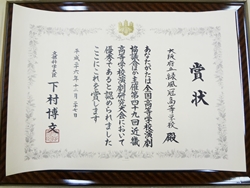 賞状
大阪府立緑風冠高等学校 殿
あなたがたは全国高等学校演劇
協議会が主催する第四十九回近畿
高等学校演劇研究大会において
優秀であると認められました
ここにこれを賞します
平成二十六年十二月二十七日
文部科学大臣
下村博文